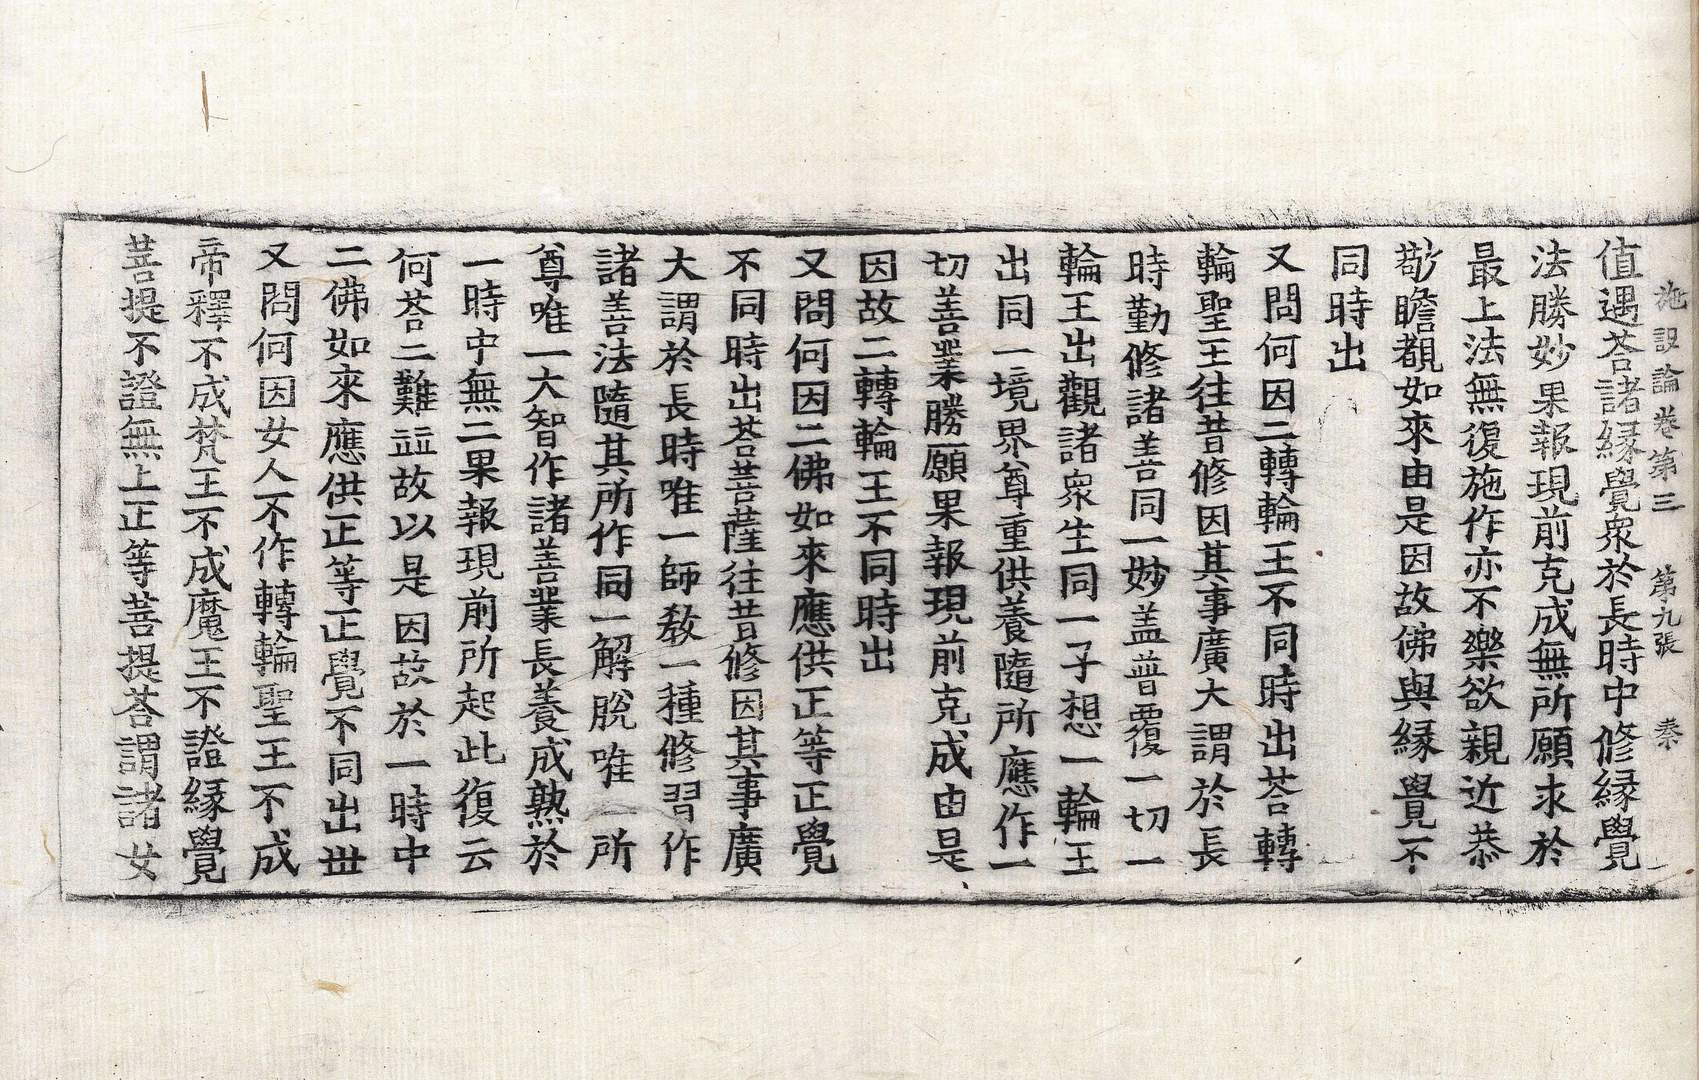 施設論卷第三　第九張　秦
值遇荅諸縁覺衆於長時中修縁覺
法勝妙果報現前克成無所願求於
最上法無復施作亦不樂欲親近恭
敬瞻覩如來由是因故佛與縁覺不
同時出
又問何因二轉輪王不同時出荅轉
輪聖王往昔修因其事廣大謂於長
時勤修諸善同一妙盖普覆一切一
輪王出觀諸衆生同一子想一輪王
出同一境界尊重供養隨所應作一
切善業勝願果報現前克成由是
因故二轉輪王不同時出
又問何因二佛如來應供正等正覺
不同時出荅菩薩往昔修因其事廣
大謂於長時唯一師教一種修習作
諸善法隨其所作同一解脫唯一所
尊唯一大智作諸善業長養成熟於
一時中無二果報現前所起此復云
何荅二難並故以是因故於一時中
二佛如來應供正等正覺不同出世
又問何因女人不作轉輪聖王不成
帝釋不成梵王不成魔王不證縁覺
菩提不證無上正等菩提荅謂諸女